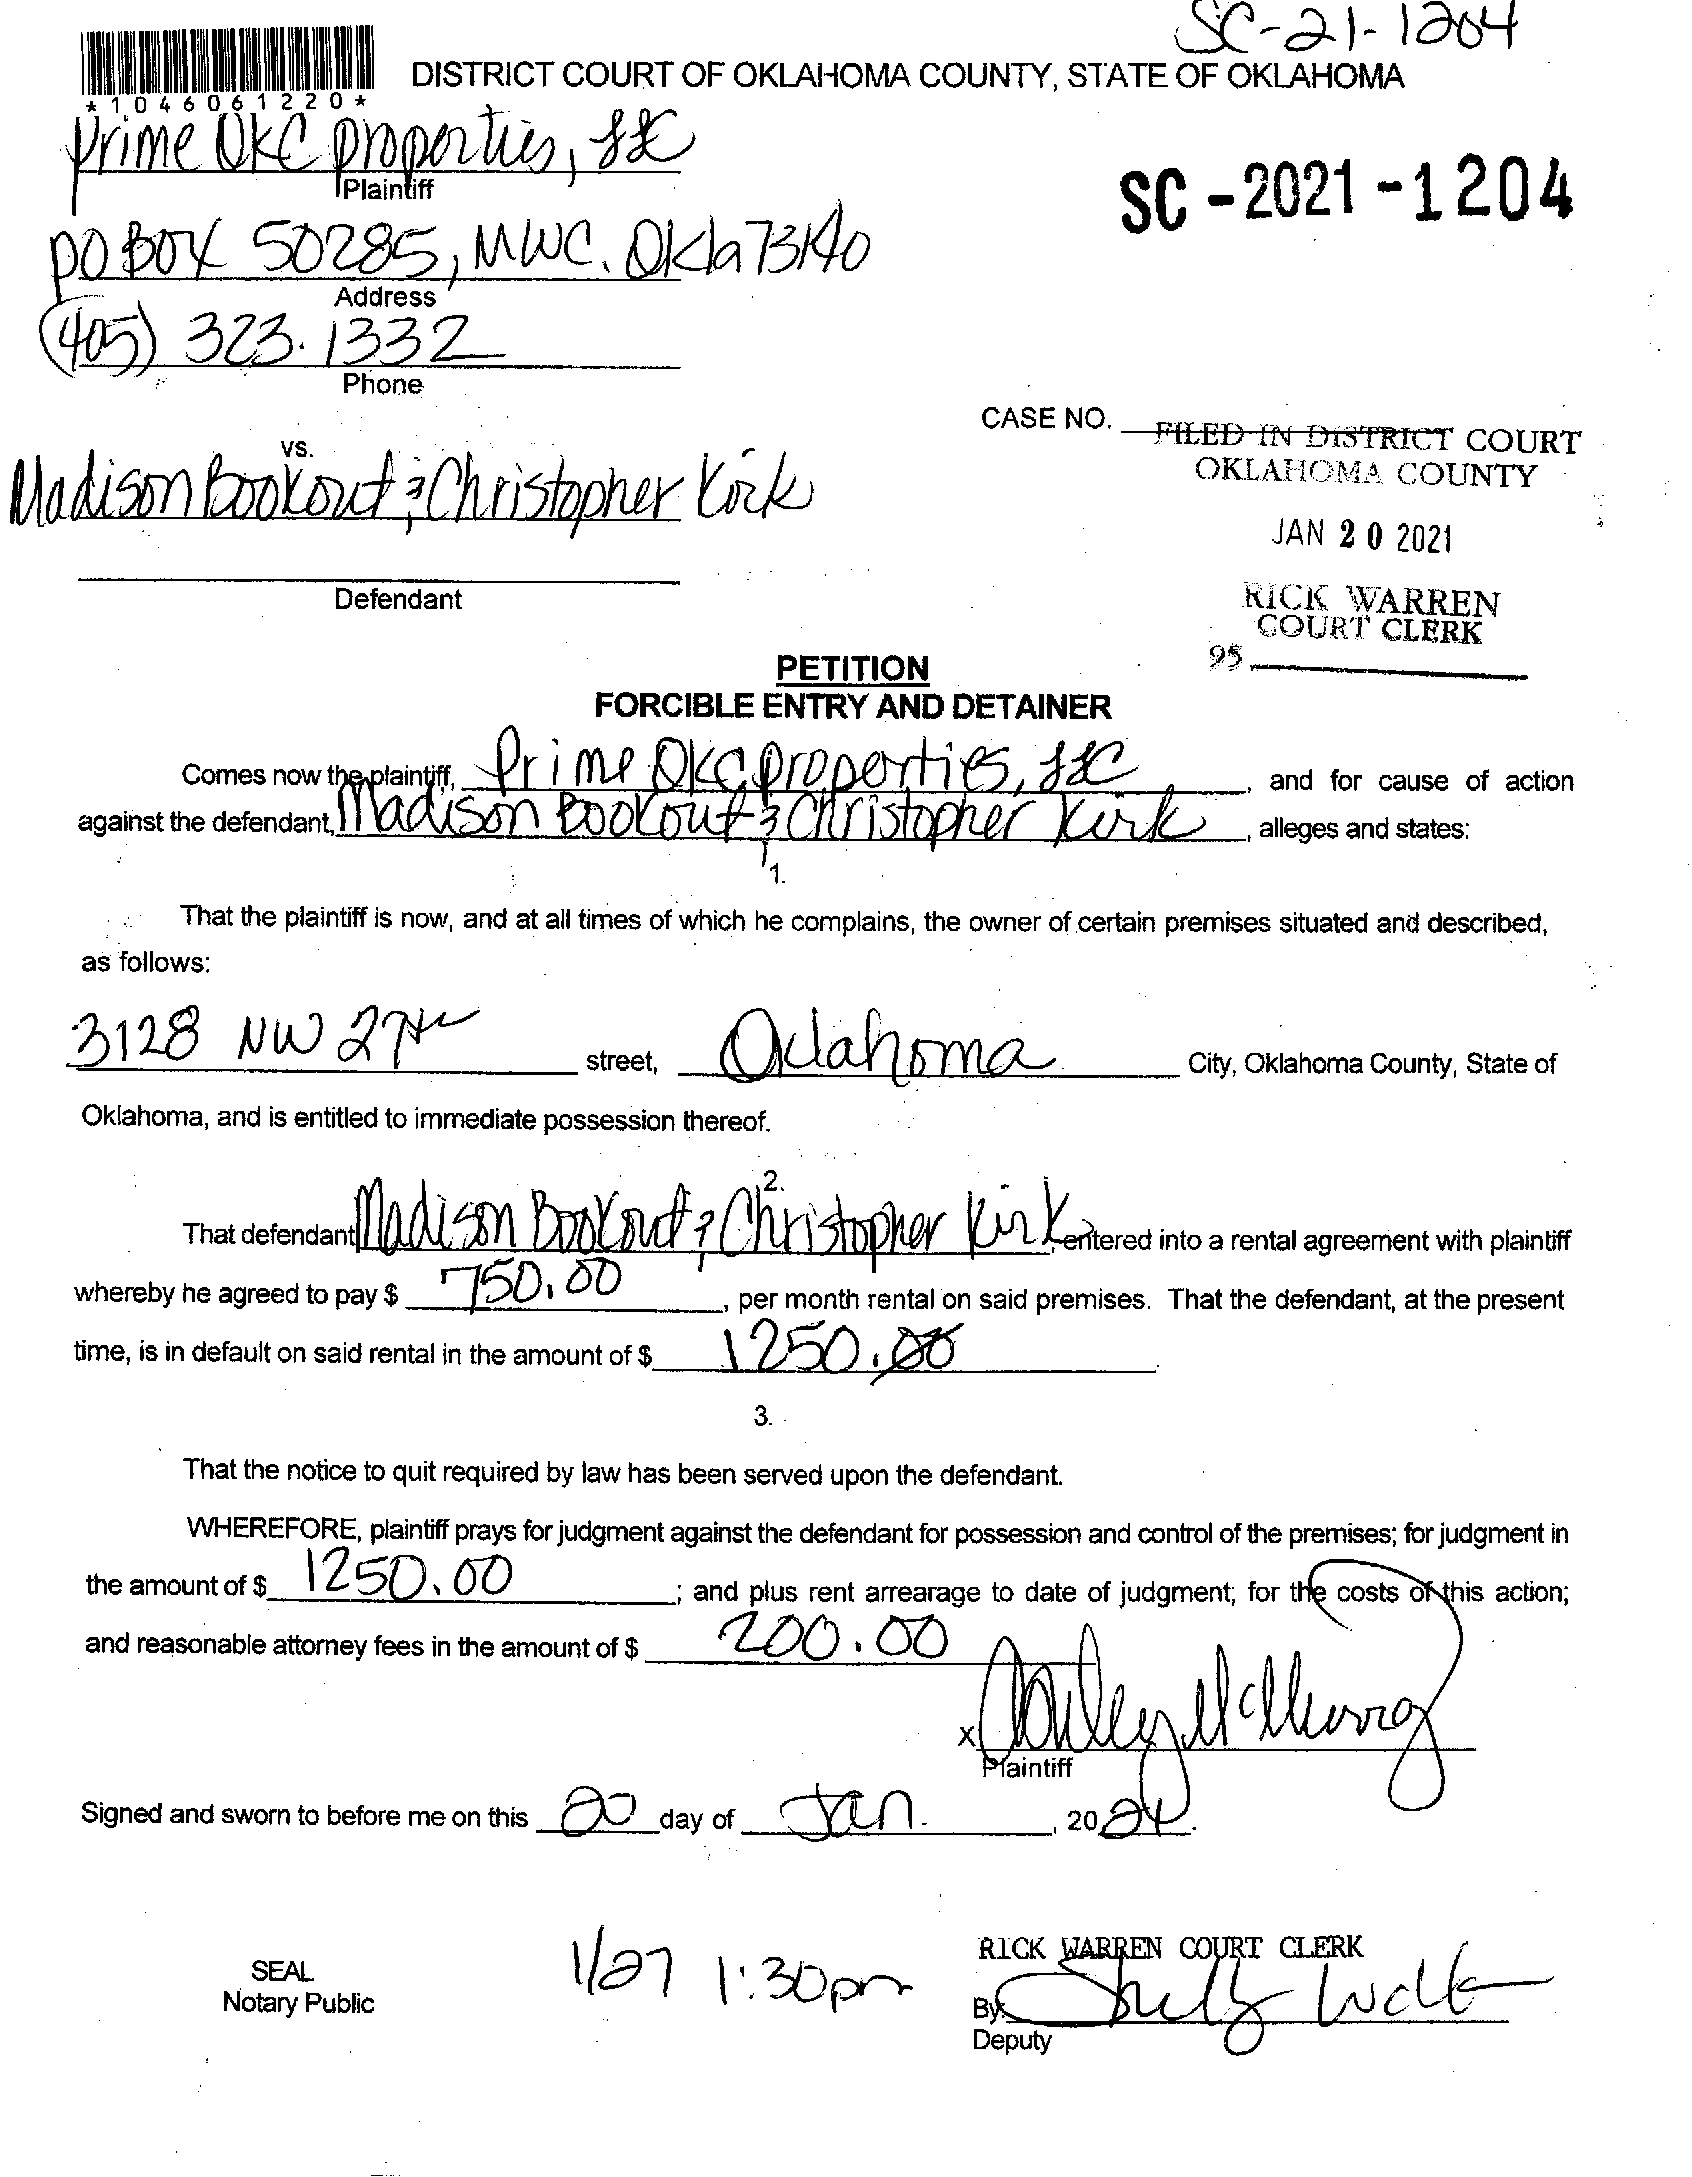 SC-21-1204
DISTRICT COURT OF OKLAHOMA COUNTY, STATE OF OKLAHOMA
*1046061220*
Prime OKC properties, LLC
Plaintiff
SC-2021-1204
PO BOX 50285, MWC. Okla 73140
Address
(405) 323.1332
Phone
CASE NO.
FILED IN DISTRICT COURT
OKLAHOMA COUNTY
vs.
Madison Bookout & Christopher Kirk
JAN 20 2021
Defendant
RICK WARREN
COURT CLERK
95
PETITION
FORCIBLE ENTRY AND DETAINER
Comes now the plaintiff, Prime OKC properties, LLC, and for cause of action
against the defendant, Madison Bookout & Christopher Kirk, alleges and states:
1.
That the plaintiff is now, and at all times of which he complains, the owner of certain premises situated and described,
as follows:
3128 NW 27th street, Oklahoma City, Oklahoma County, State of
Oklahoma, and is entitled to immediate possession thereof.
2.
That defendant Madison Bookout & Christopher Kirk, entered into a rental agreement with plaintiff
whereby he agreed to pay $ 750.00, per month rental on said premises. That the defendant, at the present
time, is in default on said rental in the amount of $ 1250.00.
3.
That the notice to quit required by law has been served upon the defendant.
WHEREFORE, plaintiff prays for judgment against the defendant for possession and control of the premises; for judgment in
the amount of $ 1250.00; and plus rent arrearage to date of judgment; for the costs of this action;
and reasonable attorney fees in the amount of $ 200.00
x
Plaintiff
Signed and sworn to before me on this 20 day of Jan., 20
SEAL
Notary Public
1/27 1:30pm
RICK WARREN COURT CLERK
By
Deputy